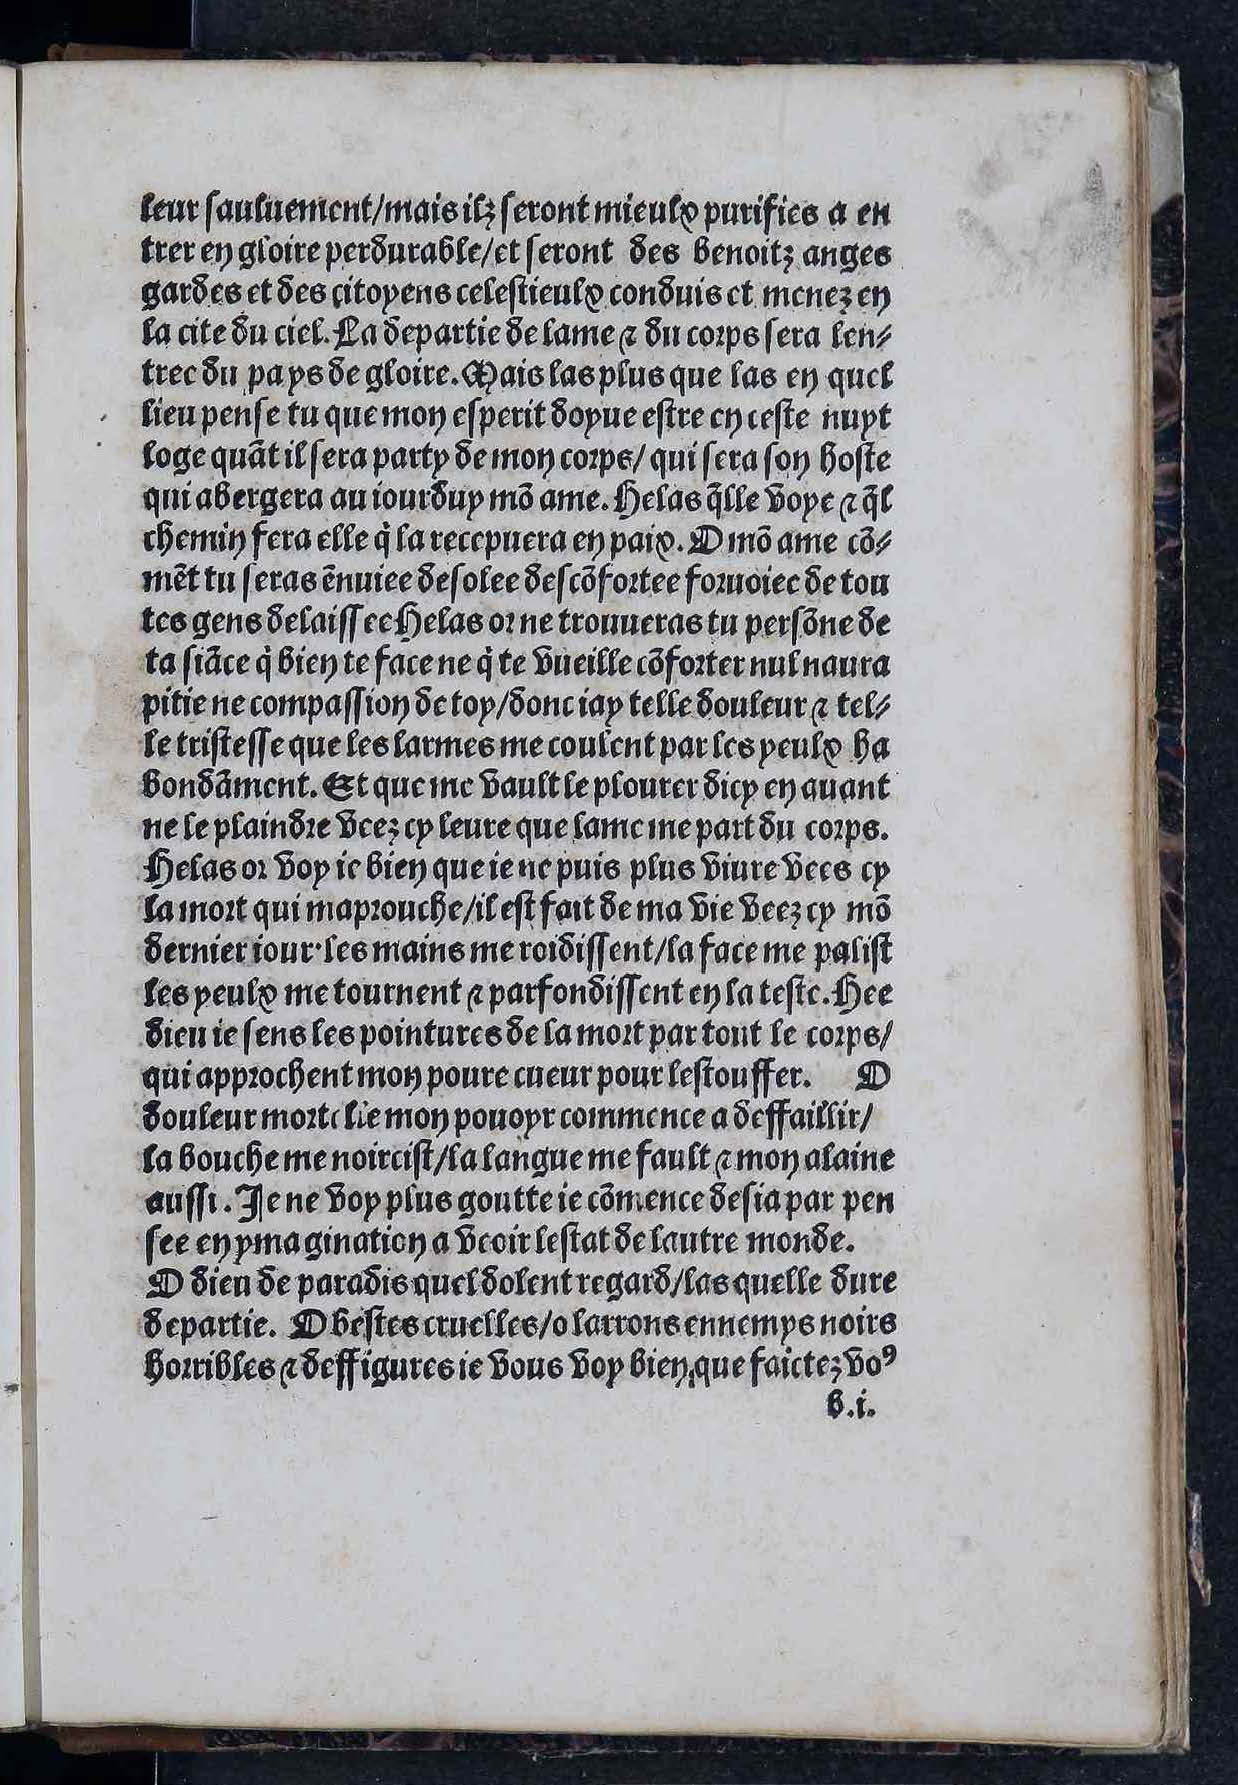 leur sauluement/mais ilz seront mieulx purifies a en
trer en gloire perdurable/et seront des benoitz anges
gardes et des citoyens celestieulx conduis et menez en
la cite du ciel. La departie de lame ⁊ du corps sera len⸗
tree du pays de gloire. Mais las plus que las en quel
lieu pense tu que mon esperit doyue estre en ceste nuyt
loge quāt il sera party de mon corps/ qui sera son hoste
qui abergera au iourduy mō ame. Helas q̄lle voye ⁊ q̄l
chemin fera elle q̇ la recepuera en paix. O mō ame cō⸗
mēt tu seras ēnuiee desolee descōfortee foruoiee de tou
tes gens delaissee Helas or ne trouueras tu persōne de
ta fiāce q̇ bien te face ne q̇ te vueille cōforter nul naura
pitie ne compassion de toy/donc iay telle douleur ⁊ tel⸗
le tristesse que les larmes me coulent par les yeulx ha
bondāment. Et que me vault le plourer dicy en auant
ne le plaindre veez cy leure que lame me part du corps.
Helas or voy ie bien que ie ne puis plus viure vees cy
la mort qui maprouche/il est fait de ma vie veez cy mō
dernier iour·les mains me roidissent/la face me palist
les yeulx me tournent ⁊ parfondissent en la teste. Hee
dieu ie sens les pointures de la mort par tout le corps/
qui approchent mon poure cueur pour lestouffer. O
douleur mortelle mon pouoyr commence a deffaillir/
la bouche me noircist/la langue me fault ⁊ mon alaine
aussi. Je ne voy plus goutte ie cōmence desia par pen
see en ymagination a veoir lestat de lautre monde.
O dieu de paradis quel dolent regard/las quelle dure
departie. O bestes cruelles/o larrons ennemys noirs
horribles ⁊ deffigures ie vous voy bien,que faictez voꝰ
b.i.